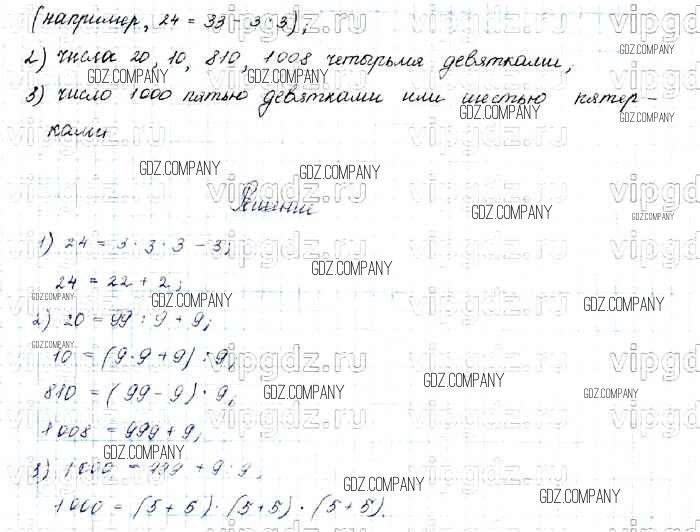 (например, 24 = 33 - 3 · 3);
2) числа 20, 10, 810, 1008 четырьмя девятками;
3) число 1000 пятью девятками или шестью пятер-
ками
Решение
1) 24 = 3 · 3 · 3 - 3;
24 = 22 + 2;
2) 20 = 99 : 9 + 9;
10 = (9 · 9 + 9) : 9;
810 = (99 - 9) · 9;
1008 = 999 + 9;
3) 1000 = 999 + 9 : 9;
1000 = (5 + 5) · (5 + 5) · (5 + 5).
GDZ.COMPANY
vipgdz.ru